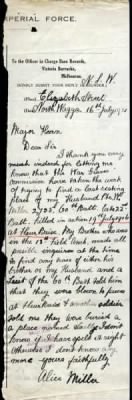 IMPERIAL FORCE.
To the Officer in Charge Base Records,
Victoria Barracks,
Melbourne.
N.S.W.
Elizabeth Street
North Wagga 16 July 19
Major
Dear Sir
I thank you very
much indeed for letting me
know that the War Graves
commission have taken the work
of trying to find a last resting
place of my Husband the
2703. 60th Batt.
Batt. Killed in action 19th July 1916
at My Brother who was
on the 15th Field Amb. made all
possible inquiries at the time
to find any trace of either his
brother or my Husband and a
of the 60th Batt told him
that they were blown to pieces
at and another soldier
told me they were buried
a place named I dont
know if I have spelt it right
otherwise I don't know any
more yours faithfully
Alice Miller